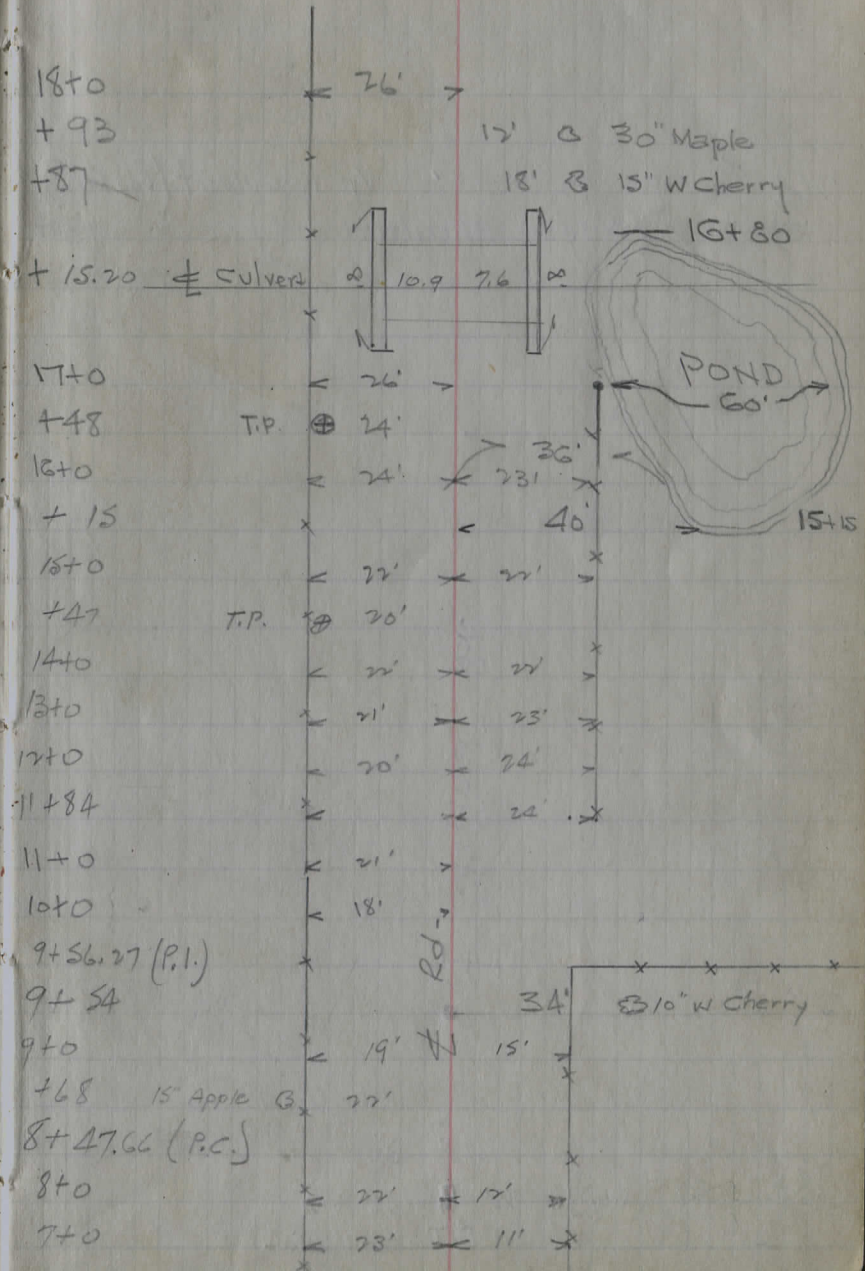 18+0 26'
+93 12' 30" Maple
+87 18' 15" W Cherry
16+80
+15.20 ℄ Culvert 8 10.9 7.6 8
17+0 26' POND
60'
+48 T.P. ⊕ 24'
36'
16+0 24' 23'
+15 40' 15+15
15+0 22' 22'
+47 T.P. ⊕ 20'
14+0 22' 22'
13+0 21' 23'
12+0 20' 24'
11+84 24'
11+0 21'
10+0 18'
9+56.27 (P.I.)
9+54 34' 10" W Cherry
℄ Rd
9+0 19' 15'
+68 15" Apple 22'
8+47.66 (P.C.)
8+0 22' 12'
7+0 23' 11'